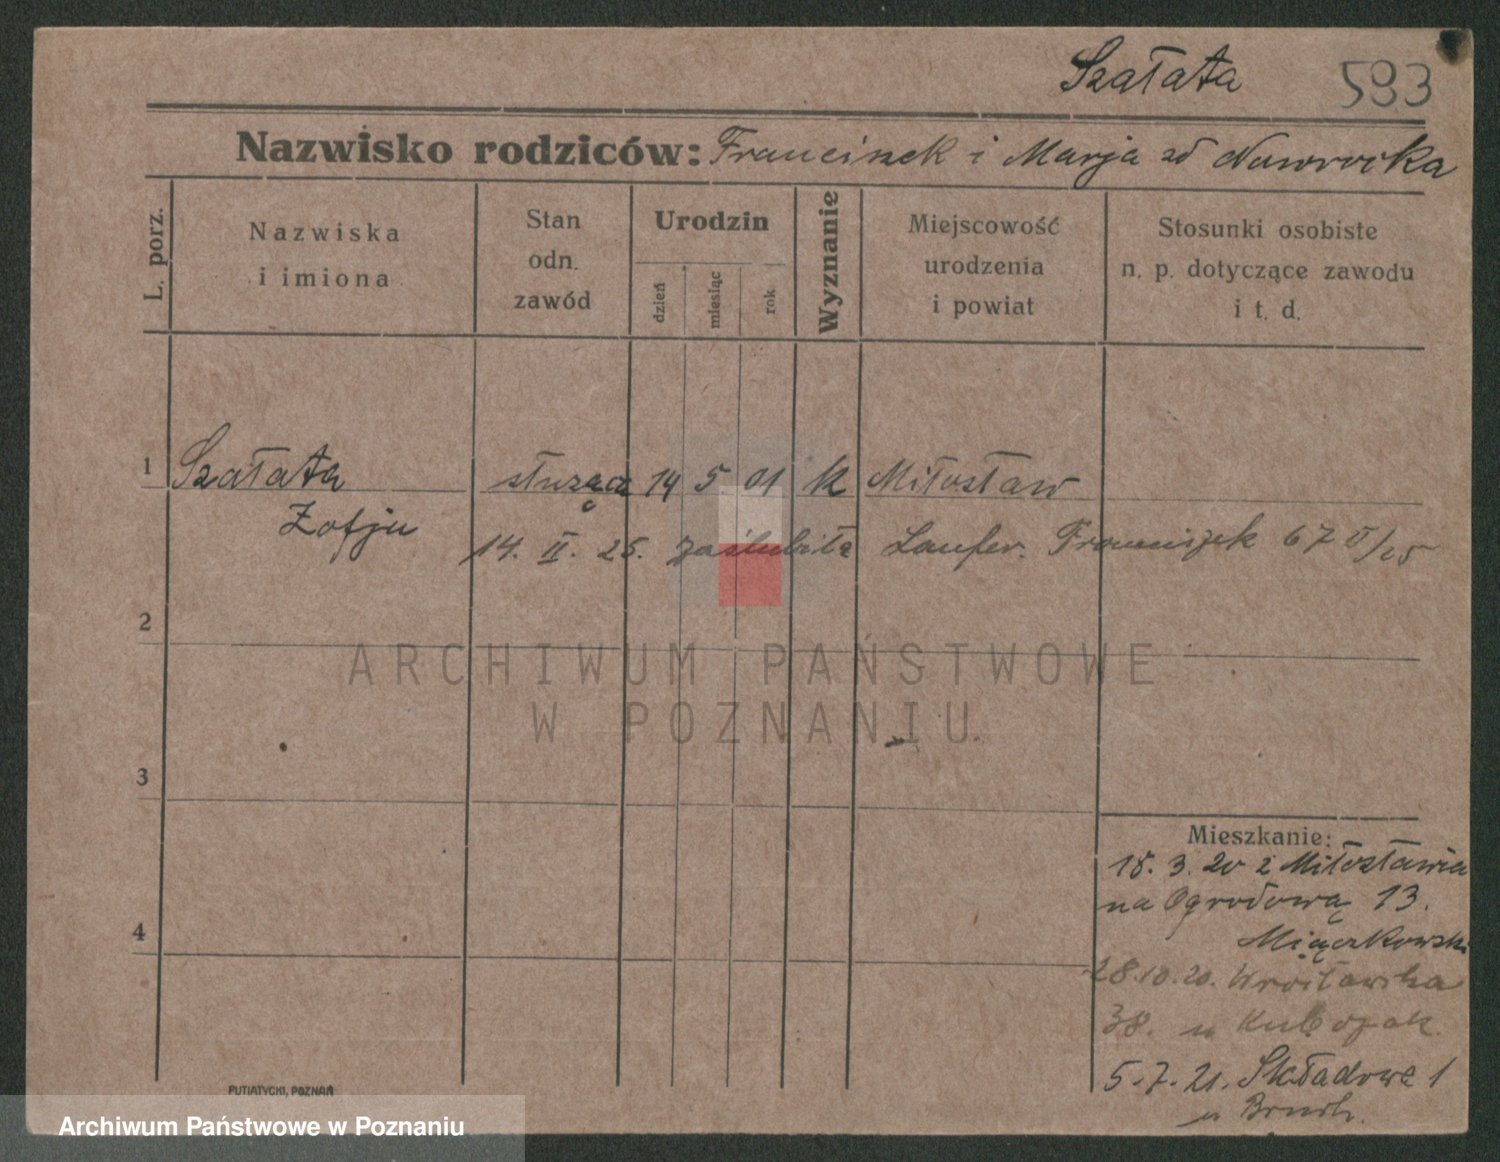 Szałata 593
Nazwisko rodziców: Franciszek i Marja zd Nawrocka
L. porz.
Nazwiska
i imiona
Stan
odn.
zawód
Urodzin
dzień
miesiąc
rok
Wyznanie
Miejscowość
urodzenia
i powiat
Stosunki osobiste
n. p. dotyczące zawodu
i t. d.
1 Szałata służąca 14 5 01 k Miłosław
Zofja
14. II. 25. zaślubiła Laufer. Franciszek 67
2
ARCHIWUM PAŃSTWOWE
W POZNANIU
3
Mieszkanie:
18. 3. 20 z Miłosławia
na Ogrodową 13.
4
Miączkowski
28.10.20. Wrocławska
38. u
5.7.21. Składowa 1
u
PUTIATYCKI, POZNAŃ
Archiwum Państwowe w Poznaniu